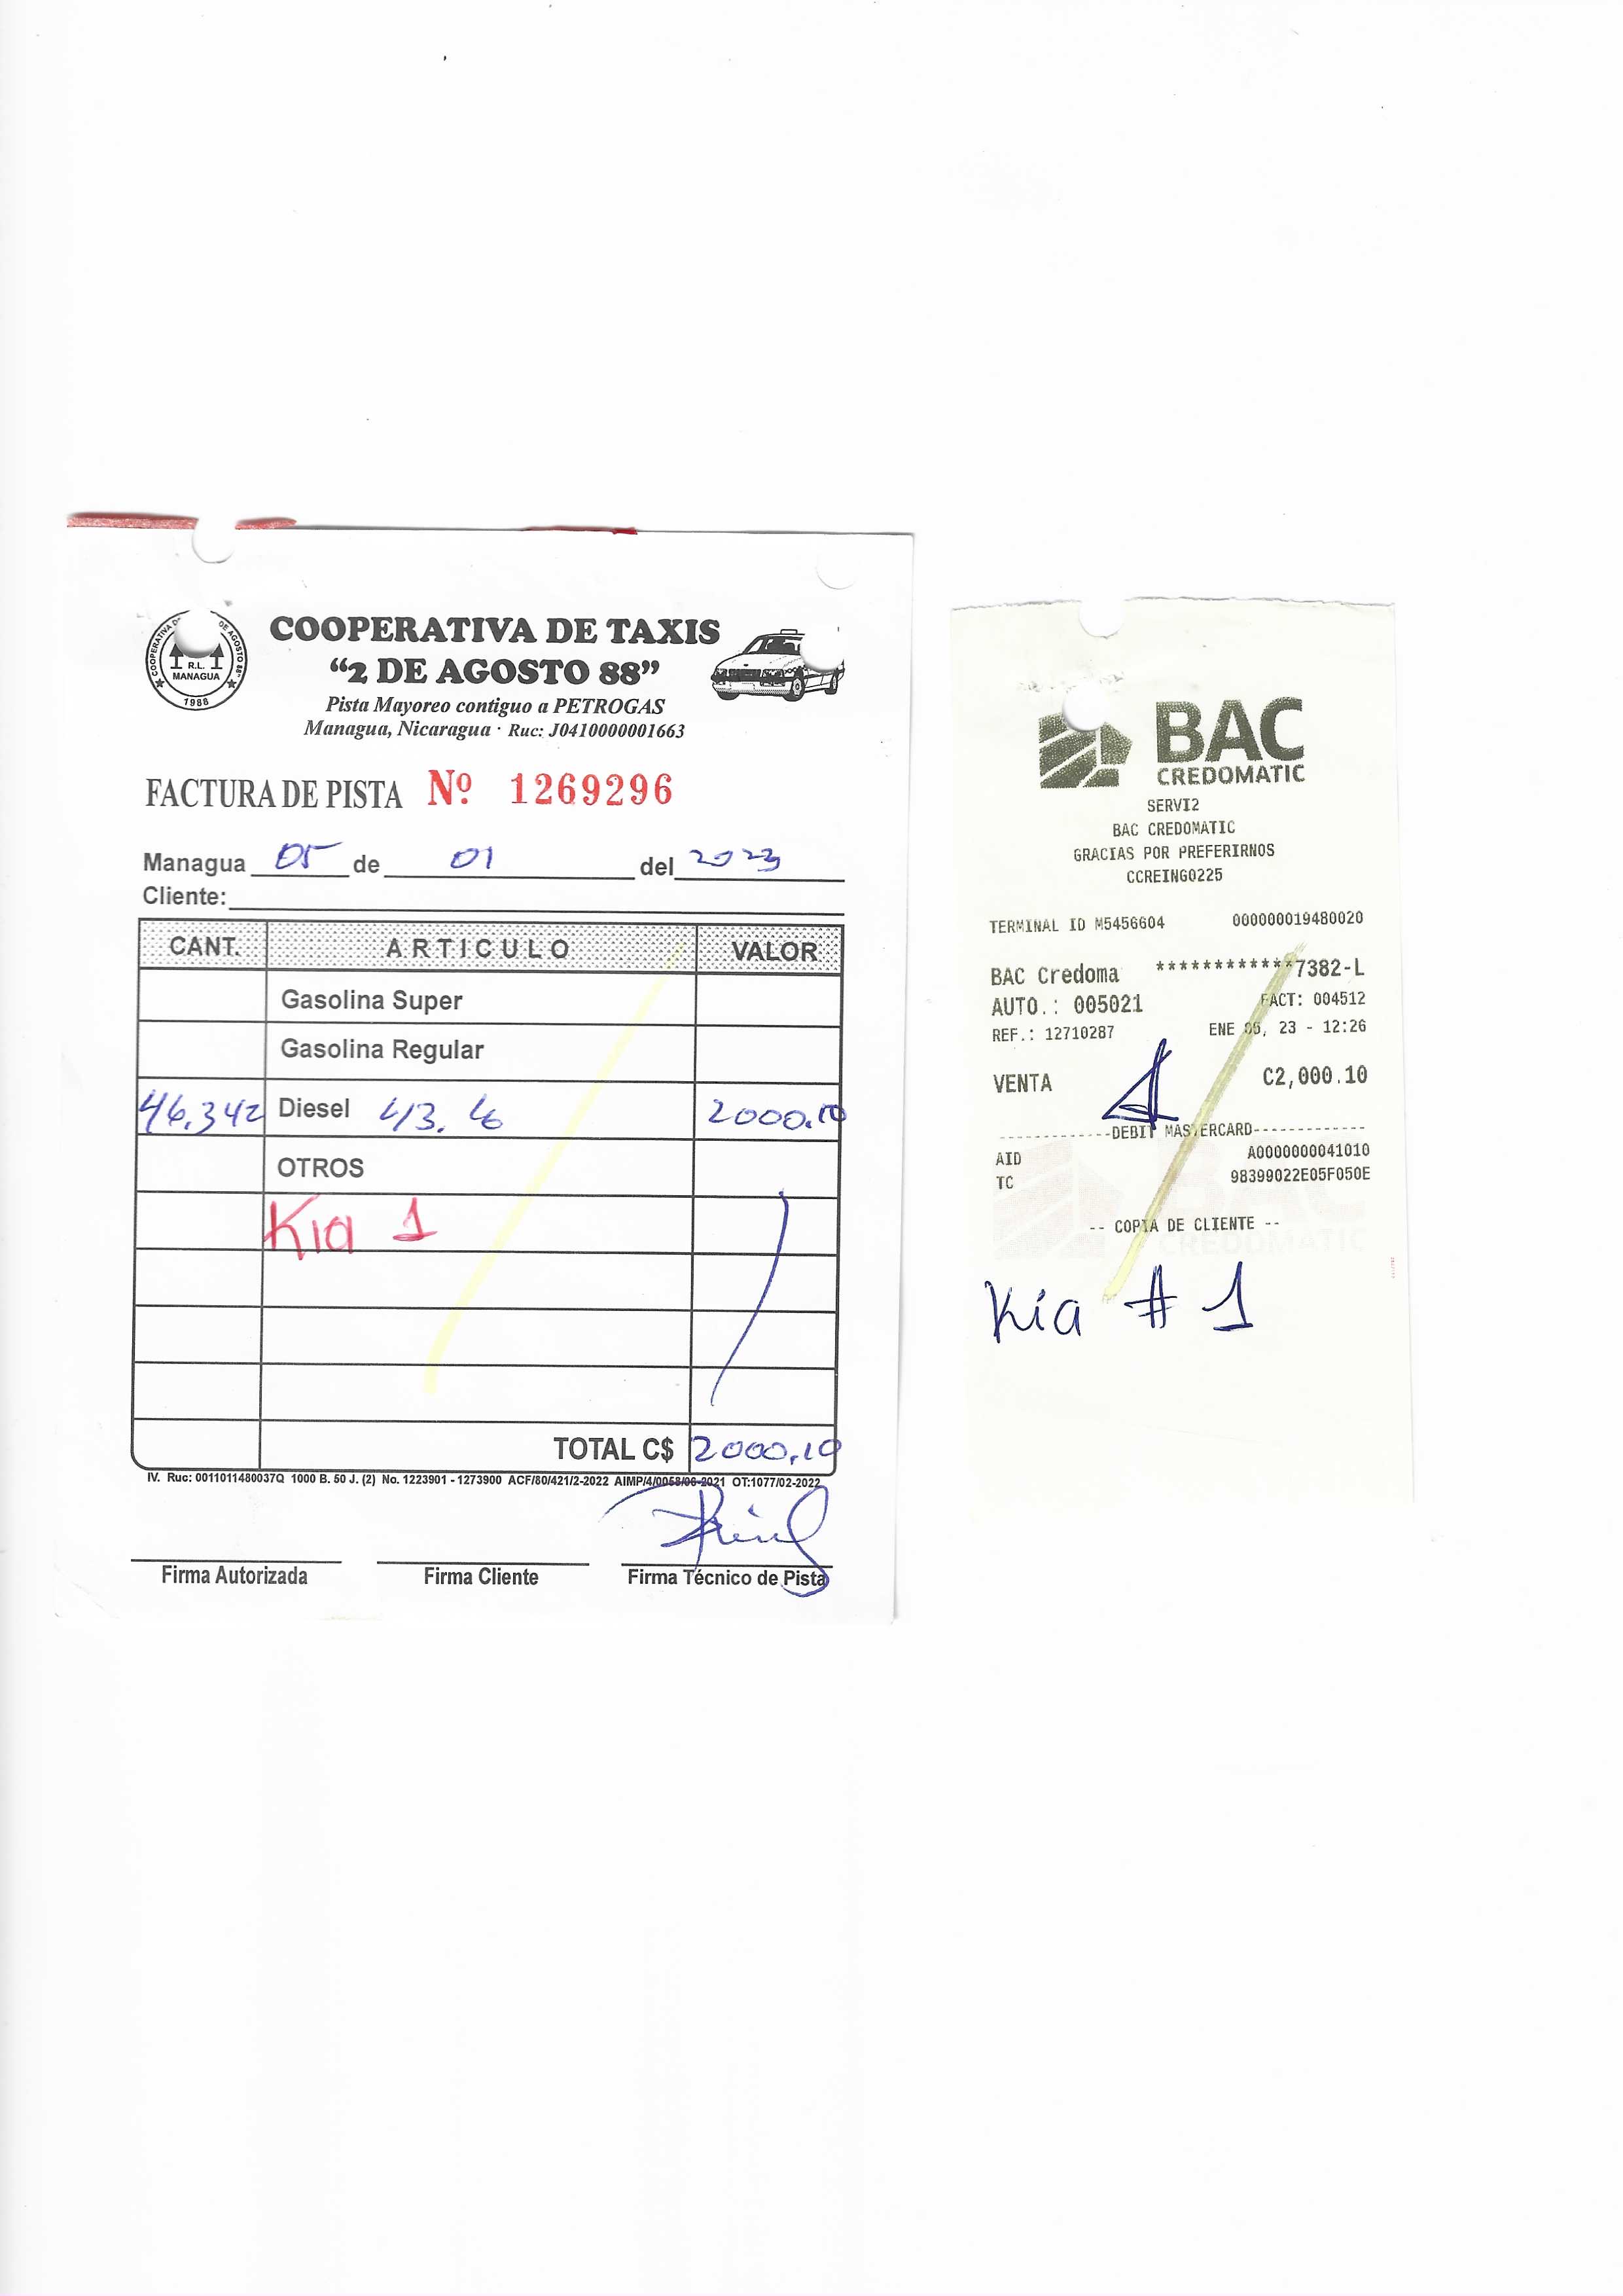 COOPERATIVA DE TAXIS
“2 DE AGOSTO 88”
Pista Mayoreo contiguo a PETROGAS
Managua, Nicaragua · Ruc: J0410000001663
R.L.
MANAGUA
1988
FACTURA DE PISTA Nº 1269296
Managua 05 de 01 del 2023
Cliente:
CANT. ARTICULO VALOR
Gasolina Super
Gasolina Regular
46.342 Diesel 43.16 2000.10
OTROS
Kia 1
TOTAL C$ 2000.10
IV. Ruc: 0011011480037Q 1000 B. 50 J. (2) No. 1223901 - 1273900 ACF/80/421/2-2022 AIMP/4/0058/06-2021 OT:1077/02-2022
Firma Autorizada Firma Cliente Firma Técnico de Pista
BAC
CREDOMATIC
SERVI2
BAC CREDOMATIC
GRACIAS POR PREFERIRNOS
CCREING0225
TERMINAL ID M5456604 000000019480020
BAC Credoma ************7382-L
AUTO.: 005021 FACT: 004512
REF.: 12710287 ENE 05, 23 - 12:26
VENTA C2,000.10
------------DEBIT MASTERCARD------------
AID A0000000041010
TC 98399022E05F050E
-- COPIA DE CLIENTE --
Kia # 1